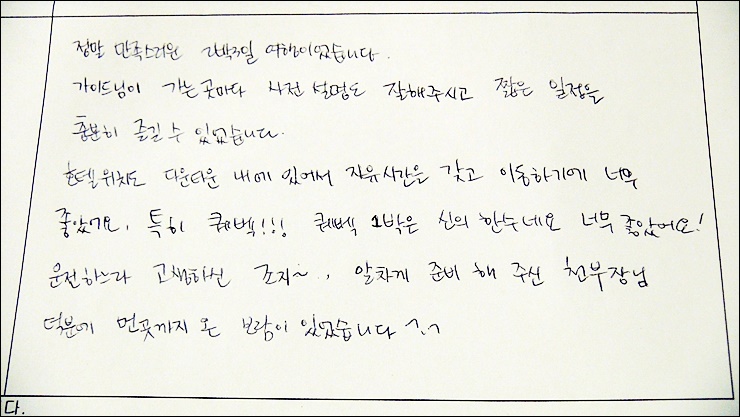 정말 만족스러운 2박3일 여행이었습니다.
가이드님이 가는 곳마다 사전 설명도 잘해주시고 짧은 일정을
충분히 즐길 수 있었습니다.
호텔 위치도 다운타운 내에 있어서 자유시간은 갖고 이동하기에 너무
좋았어요. 특히 퀘벡!!! 퀘벡 1박은 신의 한수네요 너무 좋았어요!
운전하느라 고생하신 조지~, 알차게 준비 해 주신 천부장님
덕분에 먼곳까지 온 보람이 있었습니다 ^.^
다.